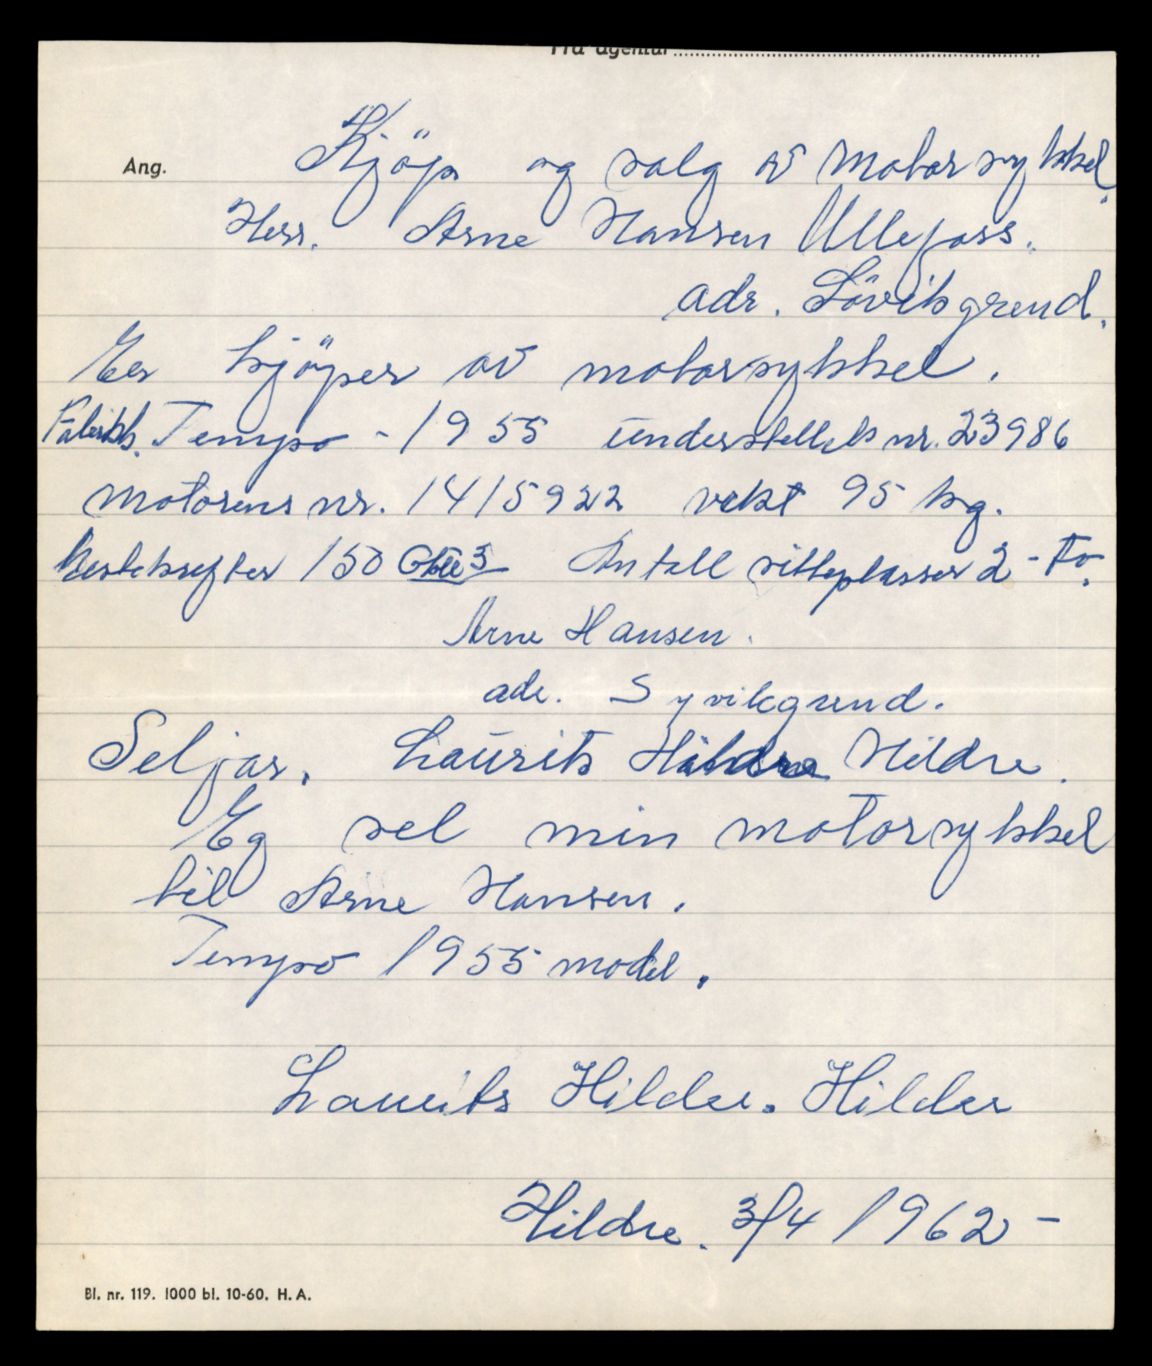 Fra agentur
Ang. Kjöp og salg av Motorsykkel.
Herr. Arne Hansen Ullafoss.
adr. Lövikgrend.
Er kjöper av motorsykkel.
Fabrikk. Tempo - 1955 understellets nr. 23986
motorens nr. 1415922 vekt 95 kg.
hestekrefter 150 Antall sitteplasser 2 - to.
Arne Hansen.
adr. Syvikgrend.
Seljar. Laurits Hildre.
Eg sel min motorsykkel
til Arne Hansen.
Tempo 1955 model.
Laurits Hildre. Hildre
Hildre. 3/4 1962 -
Bl. nr. 119. 1000 bl. 10-60. H. A.